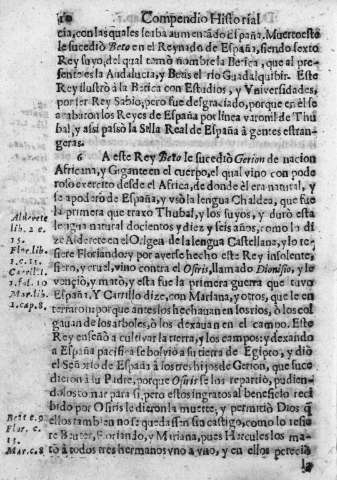 10 Compendio Historial
cia, con las quales se iba aumentãdo España. Muerto este
le sucediò Beto en el Reynado de España, siendo sexto
Rey suyo, del qual tomò nombre la Betica, que al pre-
sente es la Andalucia, y Betis el rio Guadalquibir. Este
Rey ilustrò à la Betica con Estudios, y Vniversidades,
por ser Rey Sabio, pero fue desgraciado, porque en èl se
acabaron los Reyes de España por linea varonil de Thu
bal, y assi passò la Silla Real de España à gentes estran-
geras.
6 A este Rey Beto le sucediò Gerion de nacion
Africana, y Gigante en el cuerpo, el qual vino con pode
roso exercito desde el Africa, de donde èl era natural, y
se apoderò de España, y vsò la lengua Chaldea, que fue
la primera que traxo Thubal, y los suyos, y durò esta
lengua natural docientos y diez y seis años, como lo di
ze Alderete en el Origen de la lengua Castellana, y lo re-
fiere Floriando; y por averse hecho este Rey insolente,
fiero, y cruel, vino contra èl Osiris, llamado Dionisio, y le
venciò, y matò, y esta fue la primera guerra que tuvo
España. Y Carrillo dize, con Mariana, y otros, que le en
terraron: porque antes los hechauan en los rios, ò los col
gauan de los arboles, ò los dexauan en el campo. Este
Rey enseñò à cultivar la tierra, y los campos: y dexando
à España pacifica se bolviò a su tierra de Egipto, y diò
el Señorio de España à los tres hijos de Gerion, que suce
dieron à su Padre, porque Osiris se los repartiò, pudien-
dolos tomar para si, pero estos ingratos al beneficio reci
bido por Osiris le dieron la muerte, y permitiò Dios q̃
ellos tambien no se quedassen sin castigo, como lo refie
re Beuter, Floriando, y Mariana, pues Hercules los ma-
tò à todos tres hermanos vno a vno, y en ellos pereciò
la
Alderete
lib. 2 c.
15.
Flor. lib.
1. c. 11.
Carrill. l.
1. fol. 10
Mar. lib.
1. cap. 8.
Beut c. 9.
Flor. c.
13.
Mar. c. 8